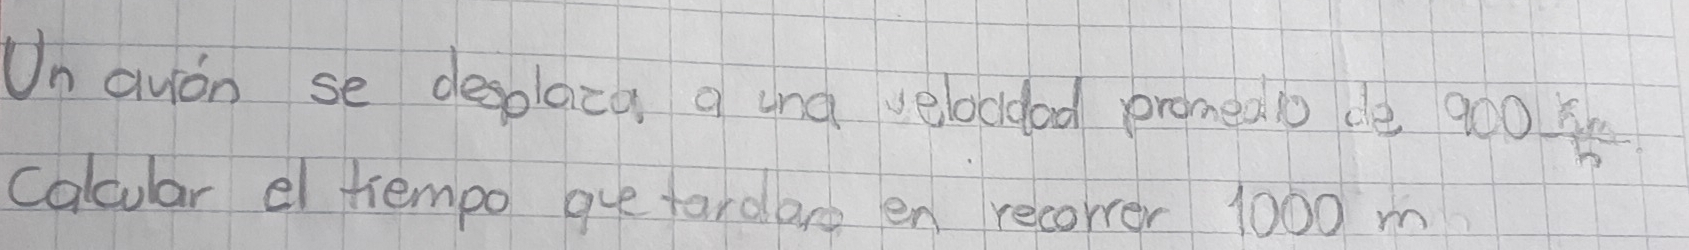 Un avión se desplaza a una velocidad promedio de 900 km/h
Calcular el tiempo que tardara en recorrer 1000 m